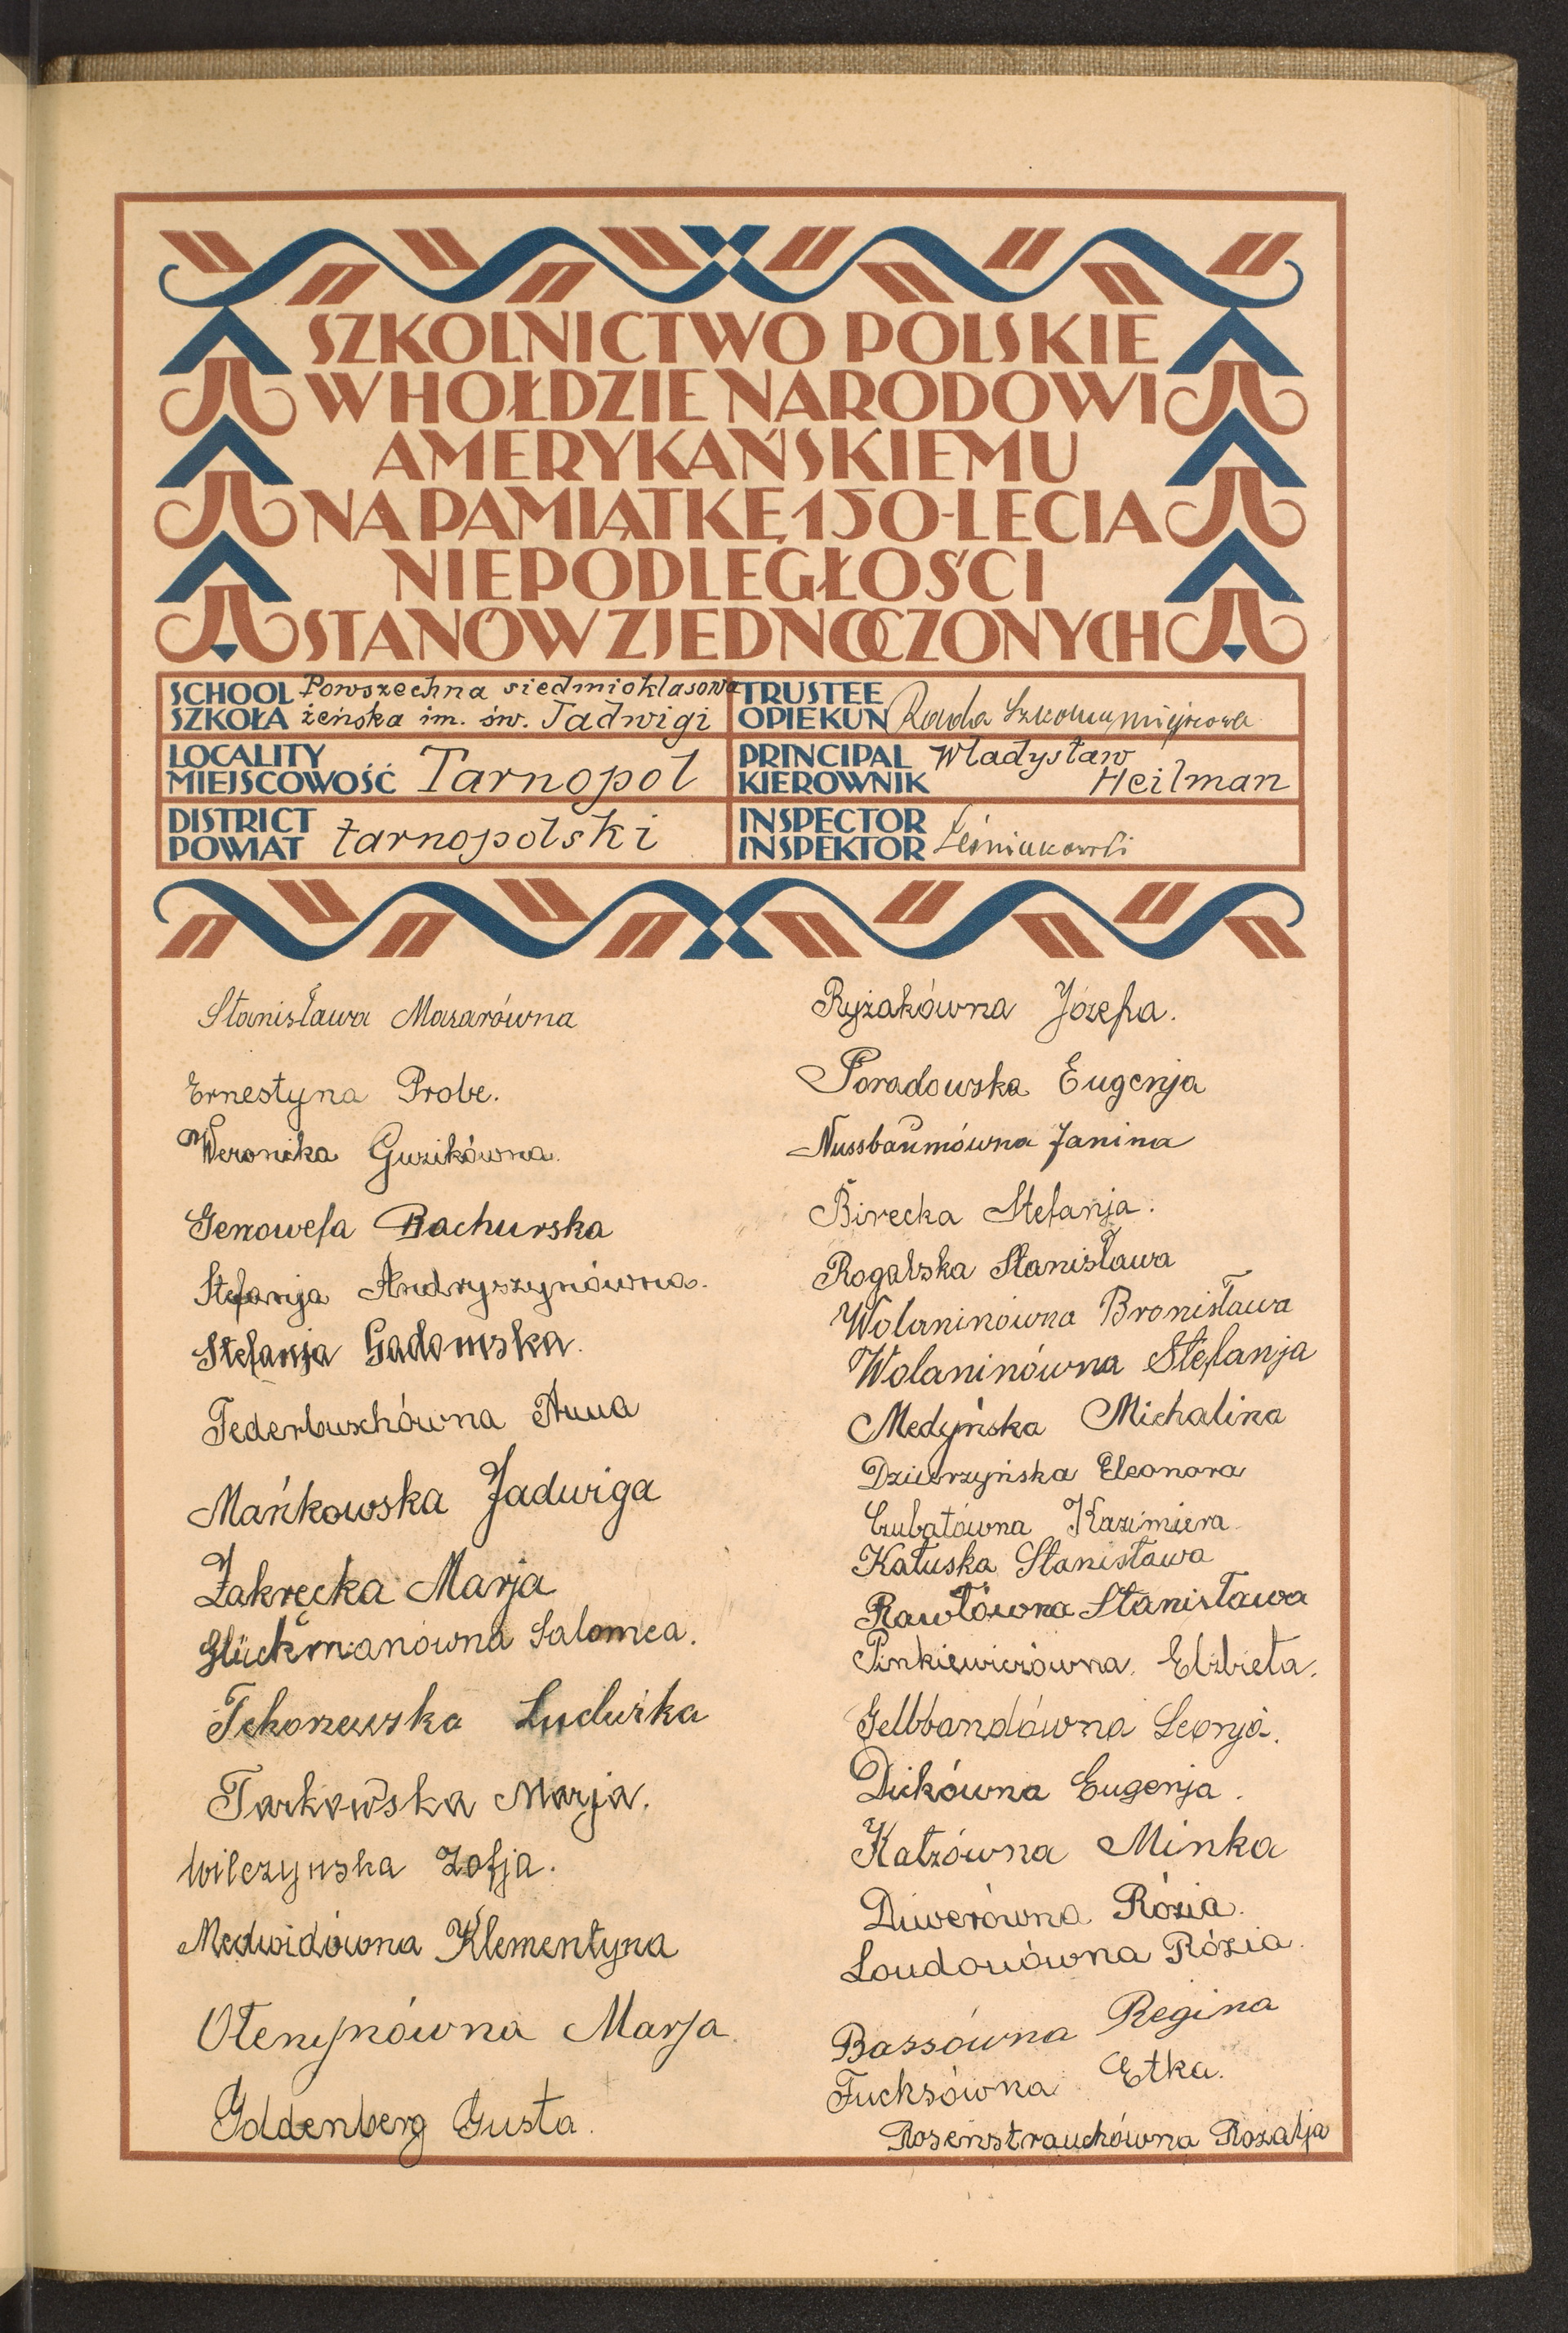 SZKOLNICTWO POLSKIE
W HOŁDZIE NARODOWI
AMERYKAŃSKIEMU
NA PAMIĄTKĘ 150-LECIA
NIEPODLEGŁOŚCI
STANÓW ZJEDNOCZONYCH
SCHOOL Powszechna siedmioklasowa
SZKOŁA żeńska im. św. Jadwigi
TRUSTEE
OPIEKUN Rada Szkolna miejscowa
LOCALITY
MIEJSCOWOŚĆ Tarnopol
PRINCIPAL Władysław
KIEROWNIK Heilman
DISTRICT
POWIAT tarnopolski
INSPECTOR
INSPEKTOR
Stanisława Mazarówna
Ernestyna Probe.
Weronika Guzikówna.
Genowefa Bachurska
Stefanja Andryszynówna.
Stefanja Gadomska.
Federbuschówna Anna
Mańkowska Jadwiga
Zakręcka Marja
Glückmanówna Salomea.
Tchorzewska Ludwika
Tarkowska Marja.
Wilczyńska Zofja.
Medwidówna Klementyna
Ołenynówna Marja.
Goldenberg Gusta.
Ryżakówna Józefa.
Poradowska Eugenja
Nussbaumówna Janina
Birecka Stefanja.
Rogalska Stanisława
Wolaninówna Bronisława
Wolaninówna Stefanja
Medyńska Michalina
Dzierzyńska Eleonora
Czubatówna Kazimiera
Kałuska Stanisława
Rawłówna Stanisława
Pinkiewiczówna Elżbieta.
Gelbbandówna Leonja.
Dickówna Eugenja.
Katzówna Minka
Diwerówna Rózia.
Loudonówna Rózia.
Bassówna Regina
Fuchsówna Etka.
Rosenstrauchówna Rozalja